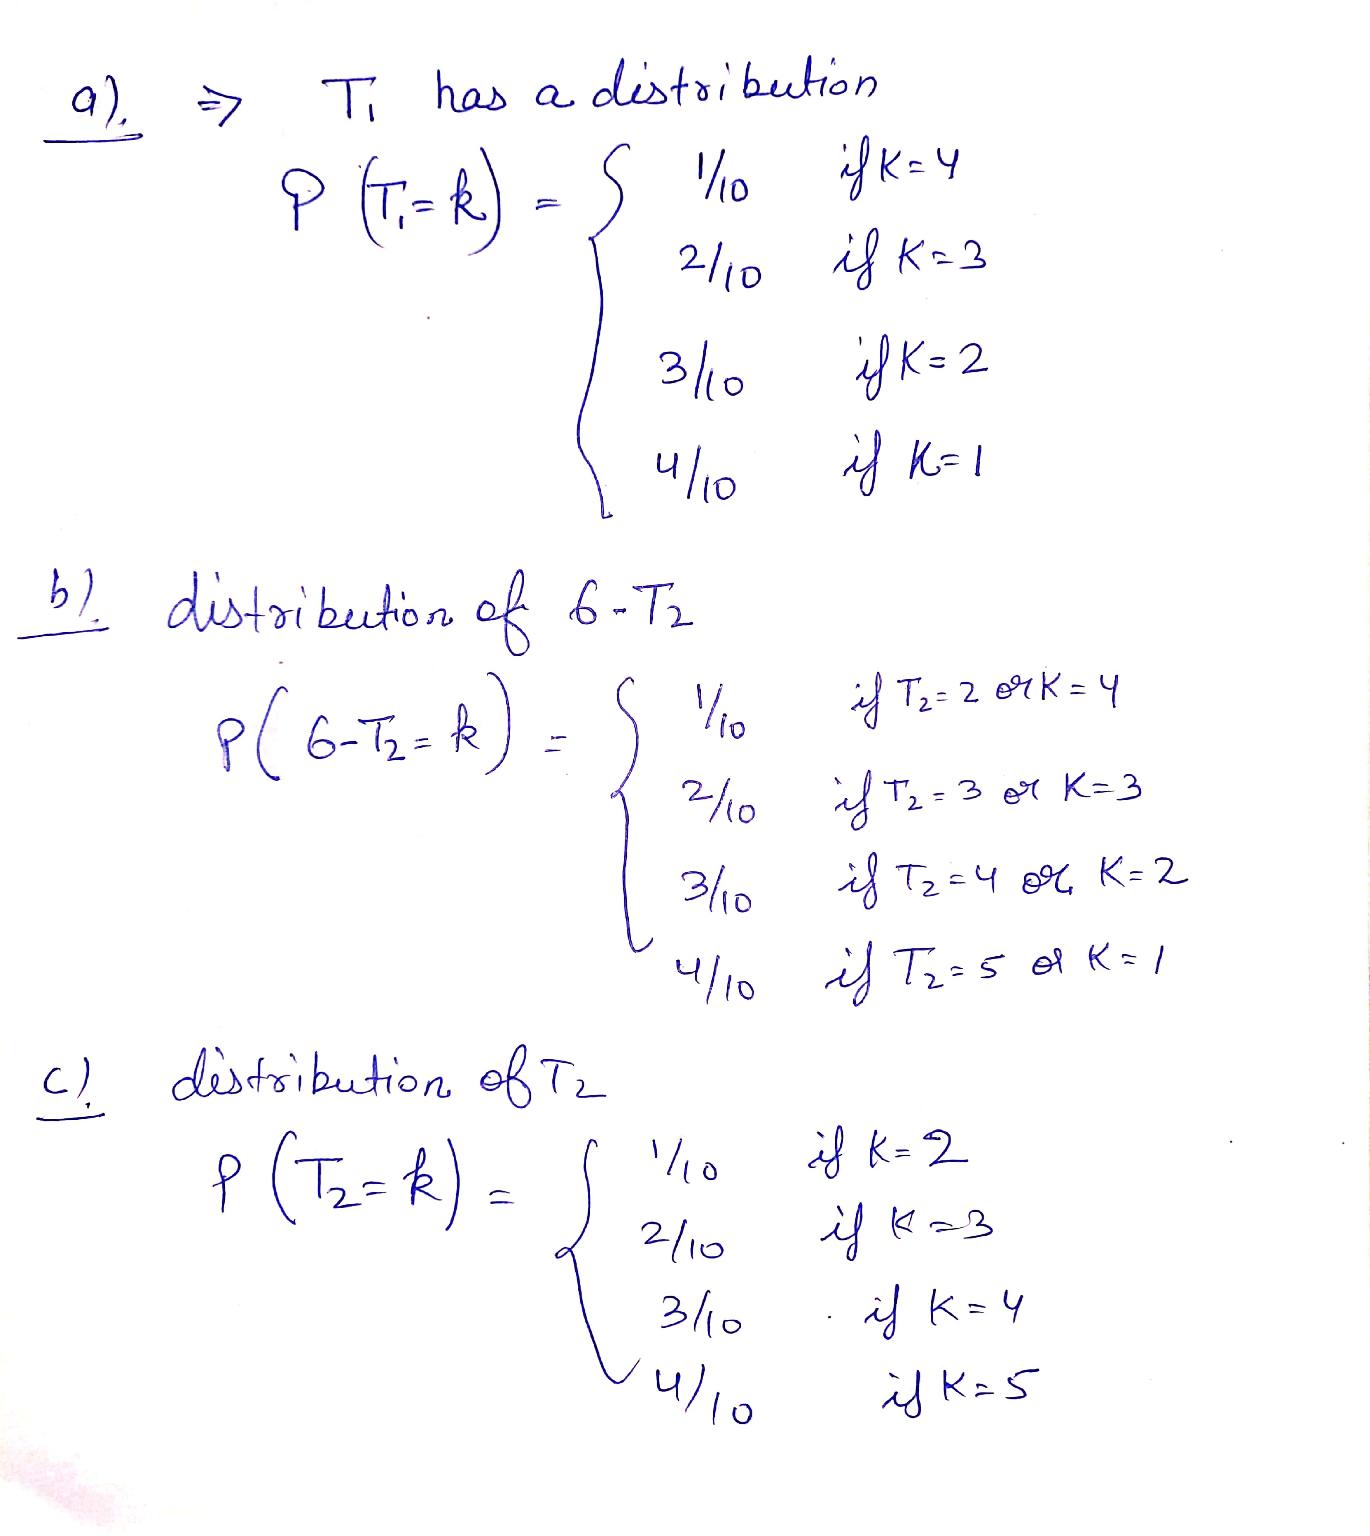 a). ⇒ T₁ has a distribution
P (T₁ = k) = { 1/10 if K = 4
2/10 if K = 3
3/10 if K = 2
4/10 if K = 1
b). distribution of 6 - T₂
P( 6 - T₂ = k ) = { 1/10 if T₂ = 2 or K = 4
2/10 if T₂ = 3 or K = 3
3/10 if T₂ = 4 or K = 2
4/10 if T₂ = 5 or K = 1
c). distribution of T₂
P (T₂ = k) = { 1/10 if K = 2
2/10 if K = 3
3/10 if K = 4
4/10 if K = 5